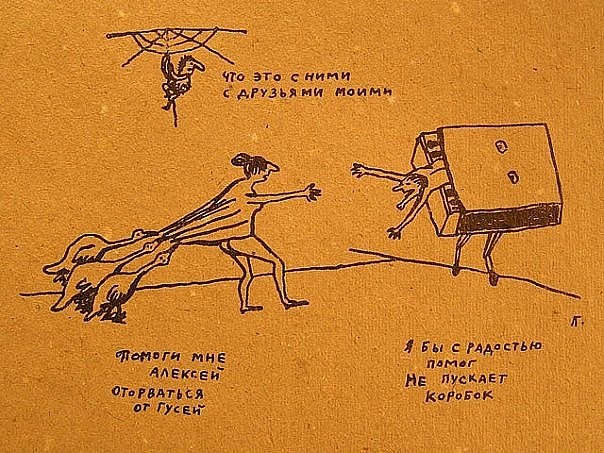 что это с ними
с друзьями моими
помоги мне
Алексей
оторваться
от гусей
я бы с радостью
помог
не пускает
коробок
П.